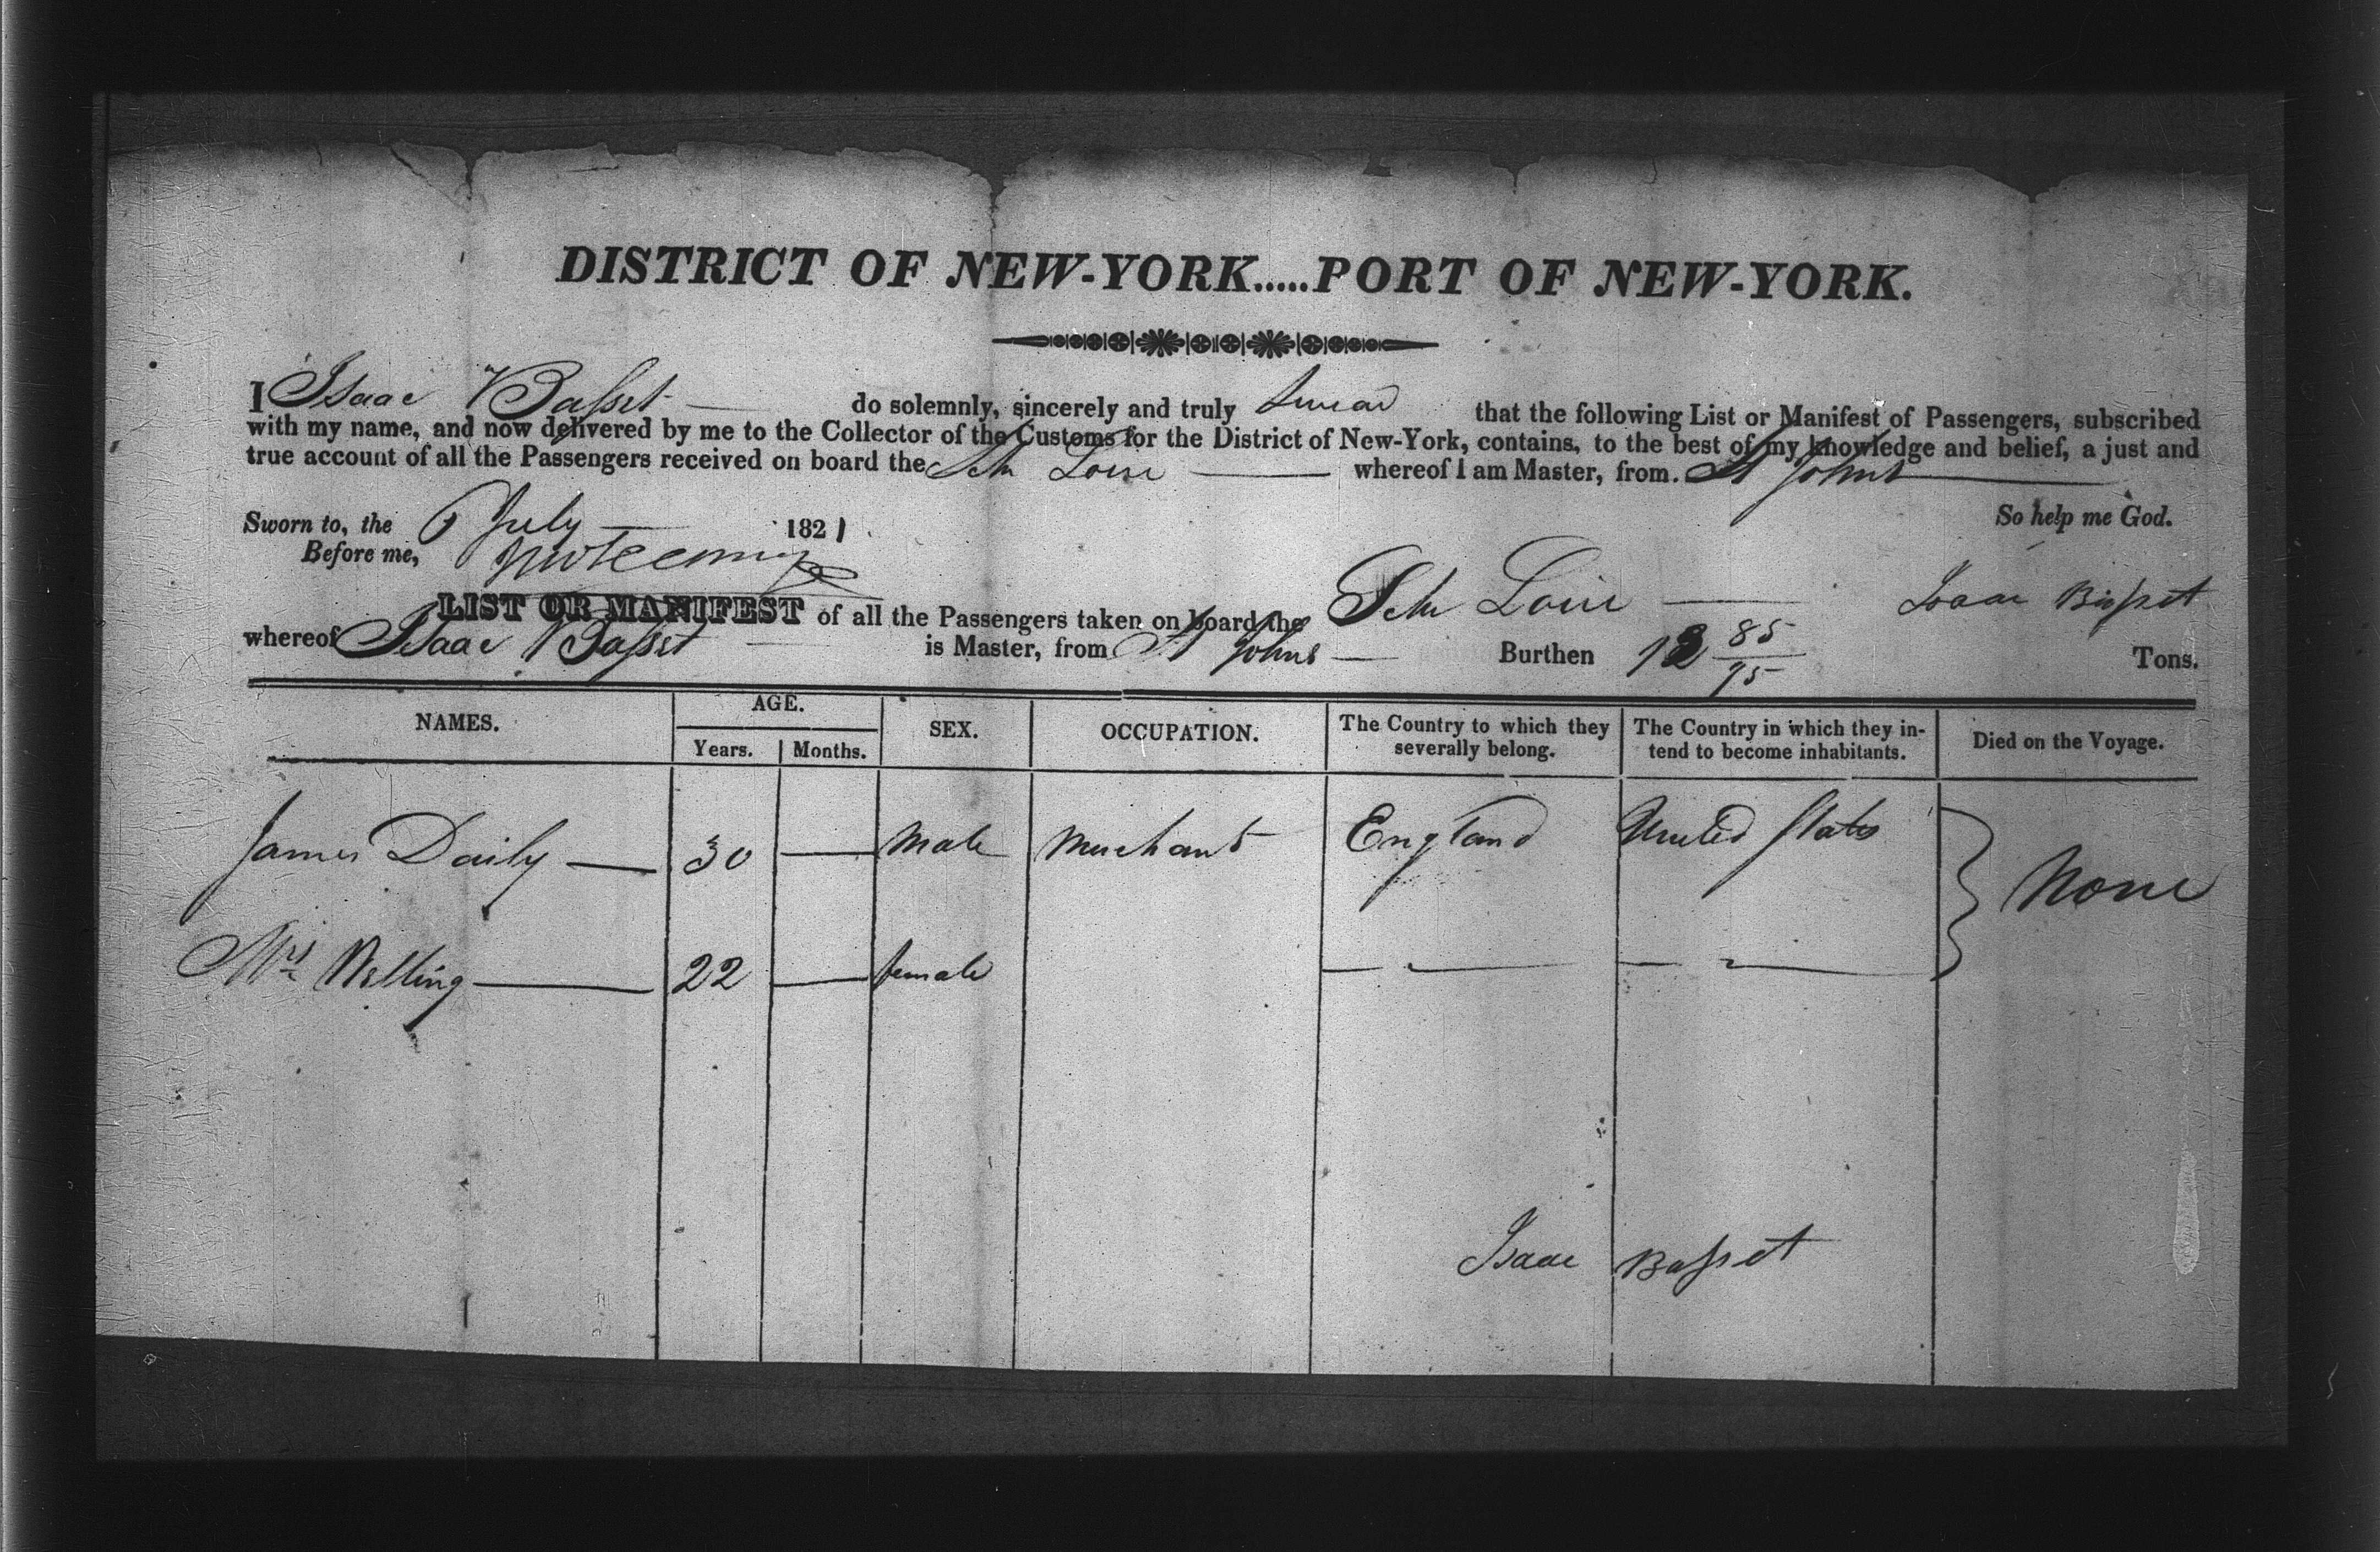 DISTRICT OF NEW-YORK.....PORT OF NEW-YORK.
I Isaac Basset do solemnly, sincerely and truly swear that the following List or Manifest of Passengers, subscribed
with my name, and now delivered by me to the Collector of the Customs for the District of New-York, contains, to the best of my knowledge and belief, a just and
true account of all the Passengers received on board the Schr whereof I am Master, from St Johns
So help me God.
Sworn to, the 6 July 1821
Before me,
Isaac Basset
LIST OR MANIFEST of all the Passengers taken on board the Schr
whereof Isaac Basset is Master, from St Johns Burthen 85/95 Tons.
NAMES. AGE. SEX. OCCUPATION. The Country to which they severally belong. The Country in which they intend to become inhabitants. Died on the Voyage.
Years. Months.
James Daily — 30 — Male Merchant England United States None
Mrs Welling — 22 — female
Isaac Basset